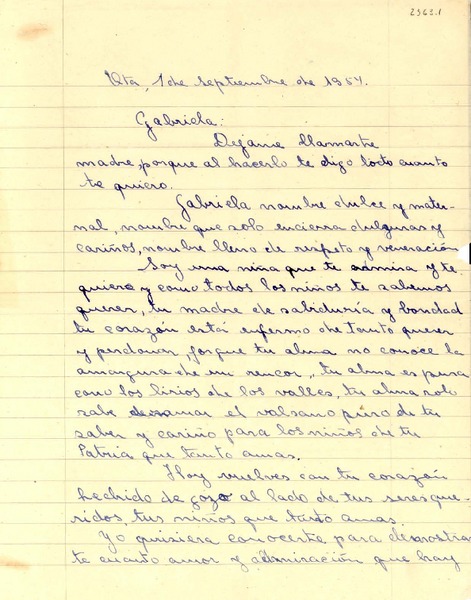 2363.1
Qta, 1 de septiembre de 1954.
Gabriela:
Dejame llamarte
madre, porque al hacerlo te digo todo cuanto
te quiero.
Gabriela nombre dulce y mater-
nal, nombre que solo encierra dulzuras y
cariños, nombre lleno de respeto y veneración
Soy una niña que te admira y te
quiere y como todos los niños te sabemos
querer, tu madre de sabiduría y bondad
tu corazón está enfermo de tanto querer
y perdonar, porque tu alma no conoce la
amargura de un rencor, tu alma es pura
como los lirios de los valles, tu alma solo
sabe derramar el valsamo puro de tu
saber y cariño para los niños de tu
Patria que tanto amas.
Hoy vuelves con tu corazón
hechido de gozo al lado de tus seres que-
ridos, tus niños que tanto amas.
Yo quisiera conocerte para demostrar
te cuanto amor y admiración que hay